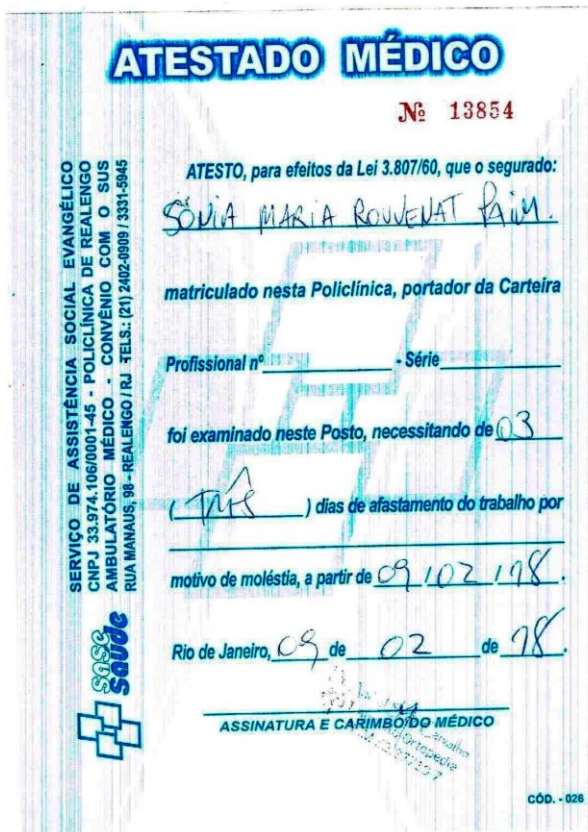 ATESTADO MÉDICO
Nº 13854
ATESTO, para efeitos da Lei 3.807/60, que o segurado:
SÔNIA MARIA ROUVENAT PAIM.
matriculado nesta Policlínica, portador da Carteira
Profissional nº - Série
foi examinado neste Posto, necessitando de 03
(TRÊS) dias de afastamento do trabalho por
motivo de moléstia, a partir de 09/02/18.
Rio de Janeiro, 09 de 02 de 18.
ASSINATURA E CARIMBO DO MÉDICO
Carvalho
Ortopedia
CÓD. - 026
SERVIÇO DE ASSISTÊNCIA SOCIAL EVANGÉLICO
CNPJ 33.974.106/0001-45 - POLICLÍNICA DE REALENGO
AMBULATÓRIO MÉDICO - CONVÊNIO COM O SUS
RUA MANAUS, 98 - REALENGO / RJ TELS.: (21) 2402-0909 / 3331-5945
sase
saúde